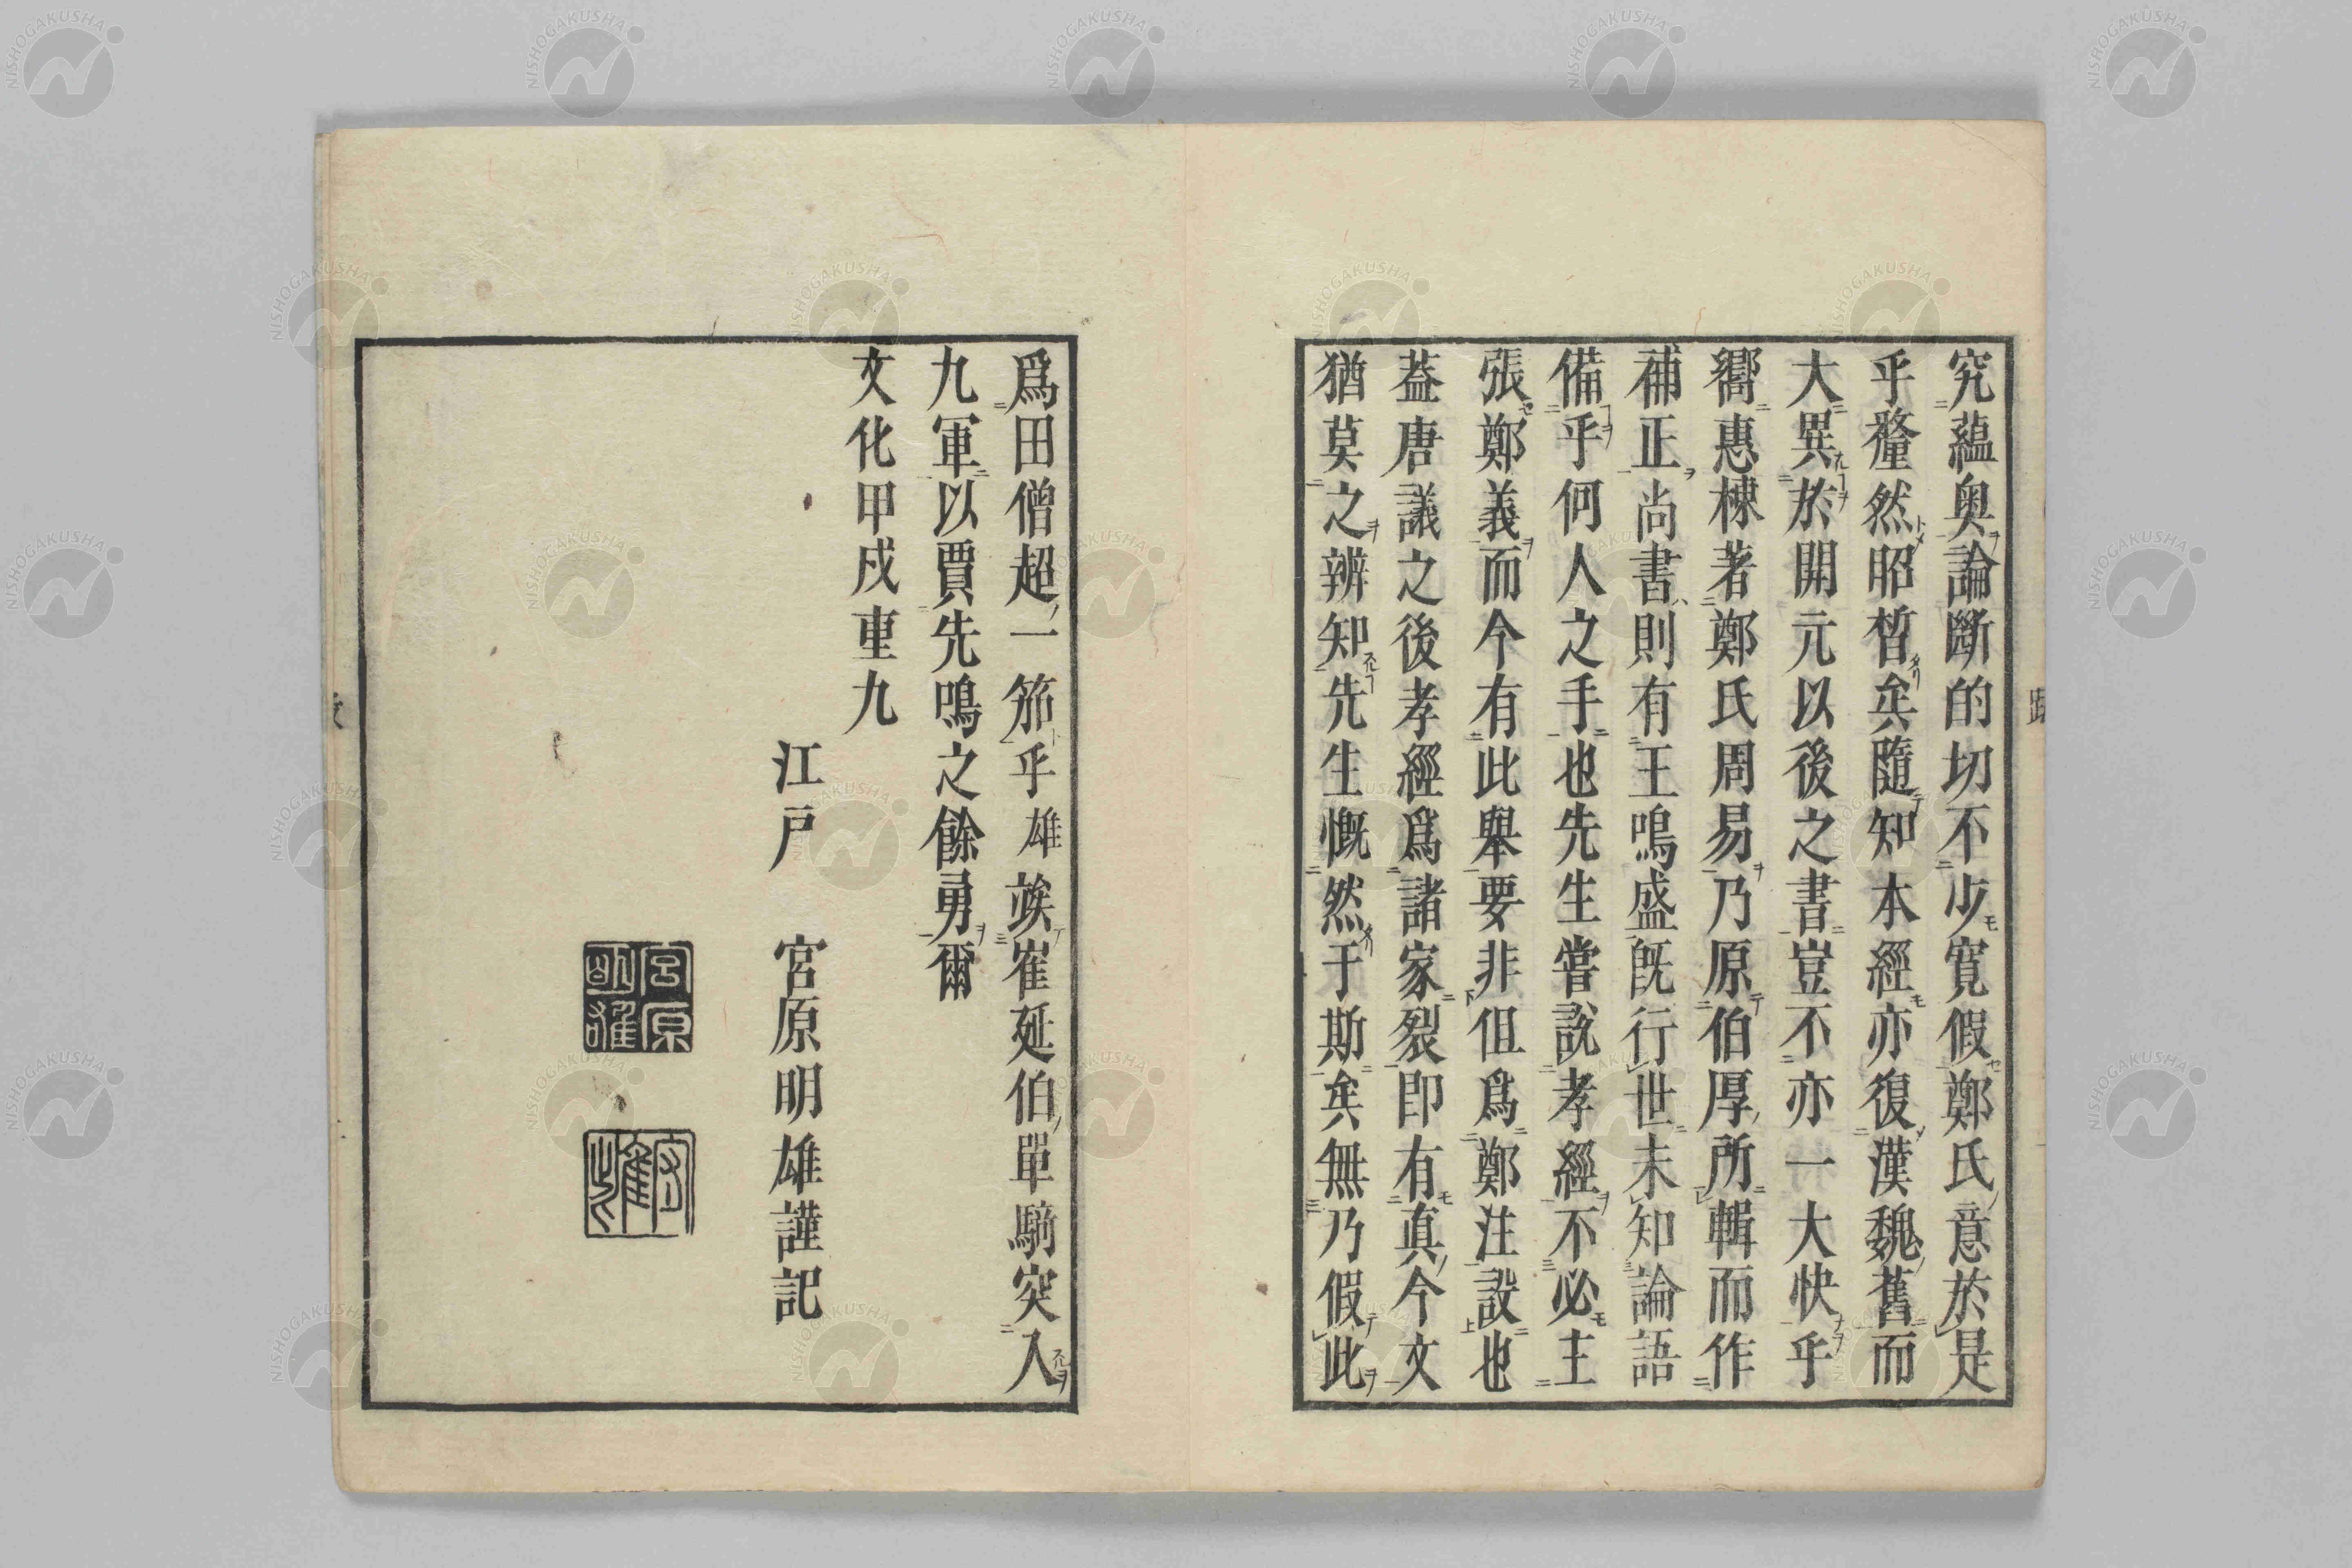 究蘊奧論斷的切不少寬假鄭氏意於是
乎釐然昭晢矣隨知本經亦復漢魏舊而
大異於開元以後之書豈不亦一大快乎
嚮惠棟著鄭氏周易乃原伯厚所輯而作
補正尚書則有王鳴盛既行世未知論語
備乎何人之手也先生嘗說孝經不必主
張鄭義而今有此舉要非但爲鄭注設也
蓋唐議之後孝經爲諸家裂即有真今文
猶莫之辨知先生慨然于斯矣無乃假此
爲田僧超一笳乎雄竢崔延伯單騎突入
九軍以賈先鳴之餘勇爾
文化甲戌重九
江戸 宮原明雄謹記
宮原
明雄
NISHOGAKUSHA